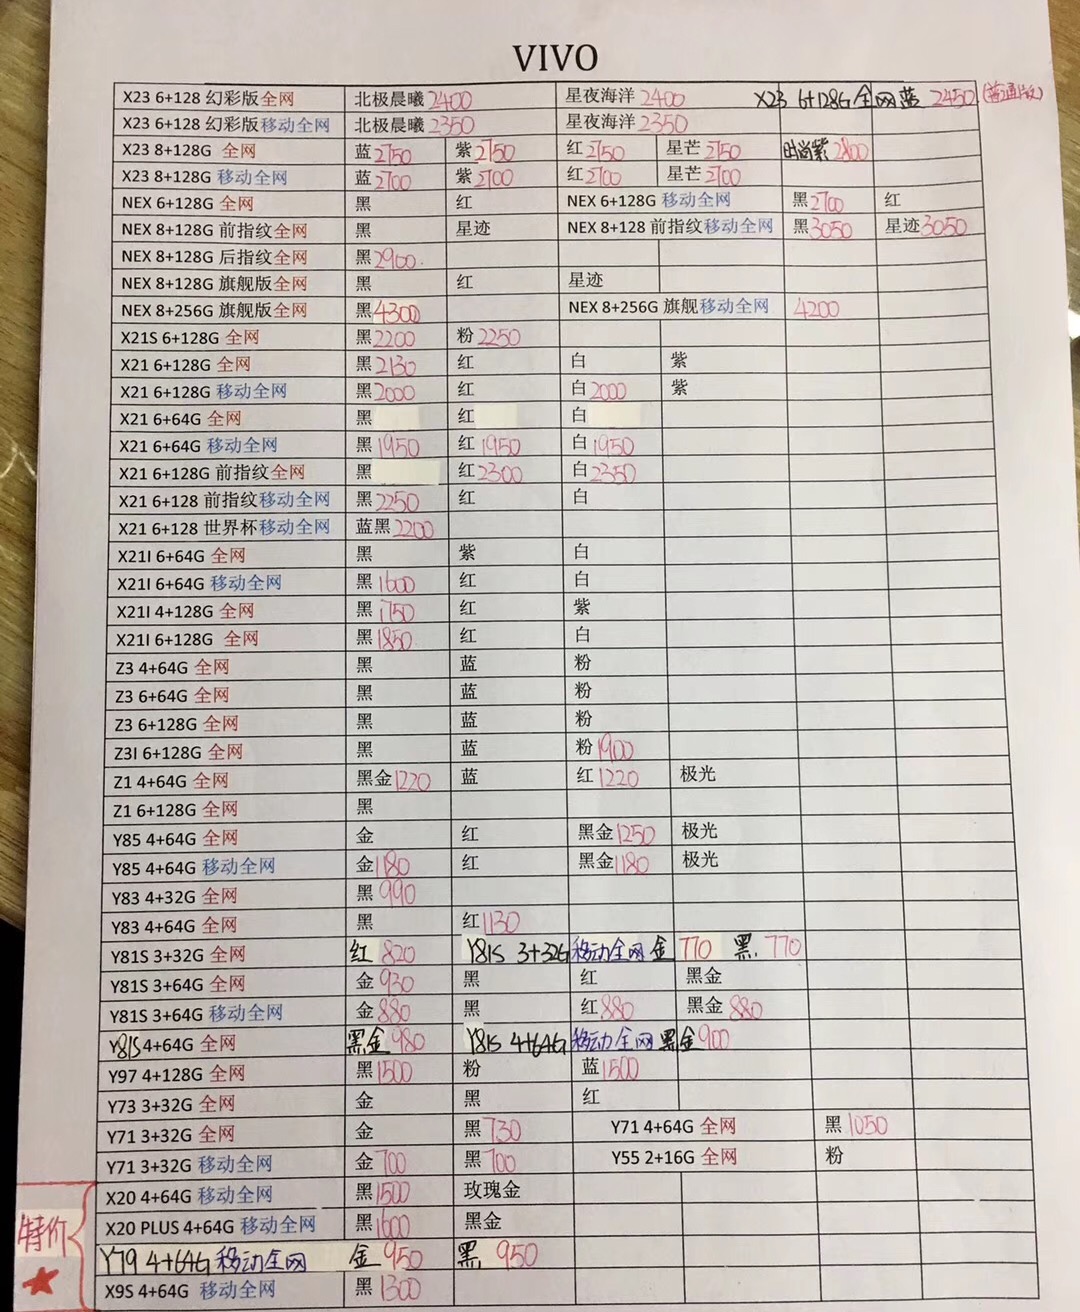 VIVO
X23 6+128 幻彩版全网 北极晨曦2400 星夜海洋2400 X23 6+128G全网蓝 2450 (普通版)
X23 6+128 幻彩版移动全网 北极晨曦2350 星夜海洋2350
X23 8+128G 全网 蓝2750 紫2750 红2750 星芒2750 时尚紫2800
X23 8+128G 移动全网 蓝2700 紫2700 红2700 星芒2700
NEX 6+128G 全网 黑 红 NEX 6+128G 移动全网 黑2700 红
NEX 8+128G 前指纹全网 黑 星迹 NEX 8+128 前指纹移动全网 黑3050 星迹3050
NEX 8+128G 后指纹全网 黑2900
NEX 8+128G 旗舰版全网 黑 红 星迹
NEX 8+256G 旗舰版全网 黑4300 NEX 8+256G 旗舰移动全网 4200
X21S 6+128G 全网 黑2200 粉2250
X21 6+128G 全网 黑2130 红 白 紫
X21 6+128G 移动全网 黑2000 红 白2000 紫
X21 6+64G 全网 黑 红 白
X21 6+64G 移动全网 黑1950 红1950 白1950
X21 6+128G 前指纹全网 黑 红2300 白2350
X21 6+128 前指纹移动全网 黑2250 红 白
X21 6+128 世界杯移动全网 蓝黑2200
X21I 6+64G 全网 黑 紫 白
X21I 6+64G 移动全网 黑1600 红 白
X21I 4+128G 全网 黑1750 红 紫
X21I 6+128G 全网 黑1850 红 白
Z3 4+64G 全网 黑 蓝 粉
Z3 6+64G 全网 黑 蓝 粉
Z3 6+128G 全网 黑 蓝 粉
Z3I 6+128G 全网 黑 蓝 粉1900
Z1 4+64G 全网 黑金1220 蓝 红1220 极光
Z1 6+128G 全网 黑
Y85 4+64G 全网 金 红 黑金1250 极光
Y85 4+64G 移动全网 金1180 红 黑金1180 极光
Y83 4+32G 全网 黑990
Y83 4+64G 全网 黑 红1130
Y81S 3+32G 全网 红 820 Y81S 3+32G移动全网 金 770 黑 770
Y81S 3+64G 全网 金930 黑 红 黑金
Y81S 3+64G 移动全网 金880 黑 红880 黑金880
Y81S 4+64G 全网 黑金980 Y81S 4+64G移动全网 黑金900
Y97 4+128G 全网 黑1500 粉 蓝1500
Y73 3+32G 全网 金 黑 红
Y71 3+32G 全网 金 黑730 Y71 4+64G 全网 黑1050
Y71 3+32G 移动全网 金700 黑700 Y55 2+16G 全网 粉
X20 4+64G 移动全网 黑1500 玫瑰金
X20 PLUS 4+64G 移动全网 黑1600 黑金
特价
Y79 4+64G 移动全网 金 950 黑 950
X9S 4+64G 移动全网 黑1300